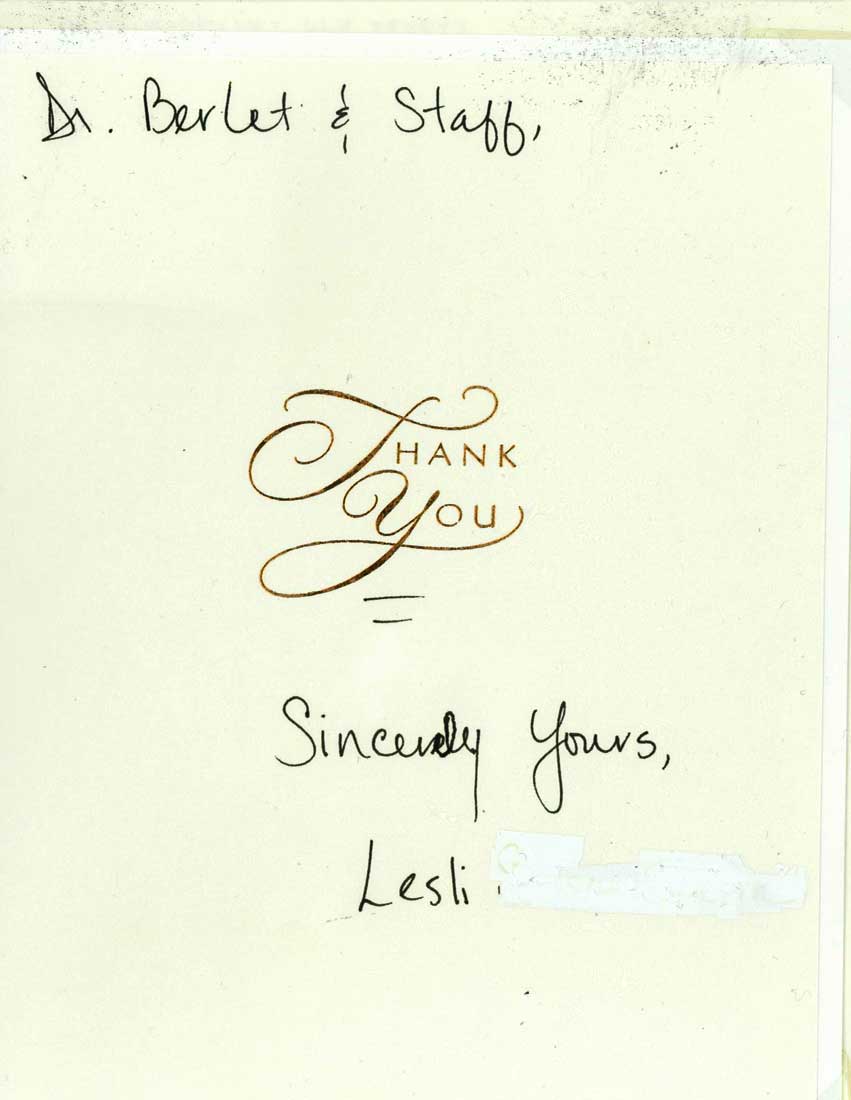 Dr. Berlet & Staff,
THANK
YOU
Sincerely Yours,
Lesli